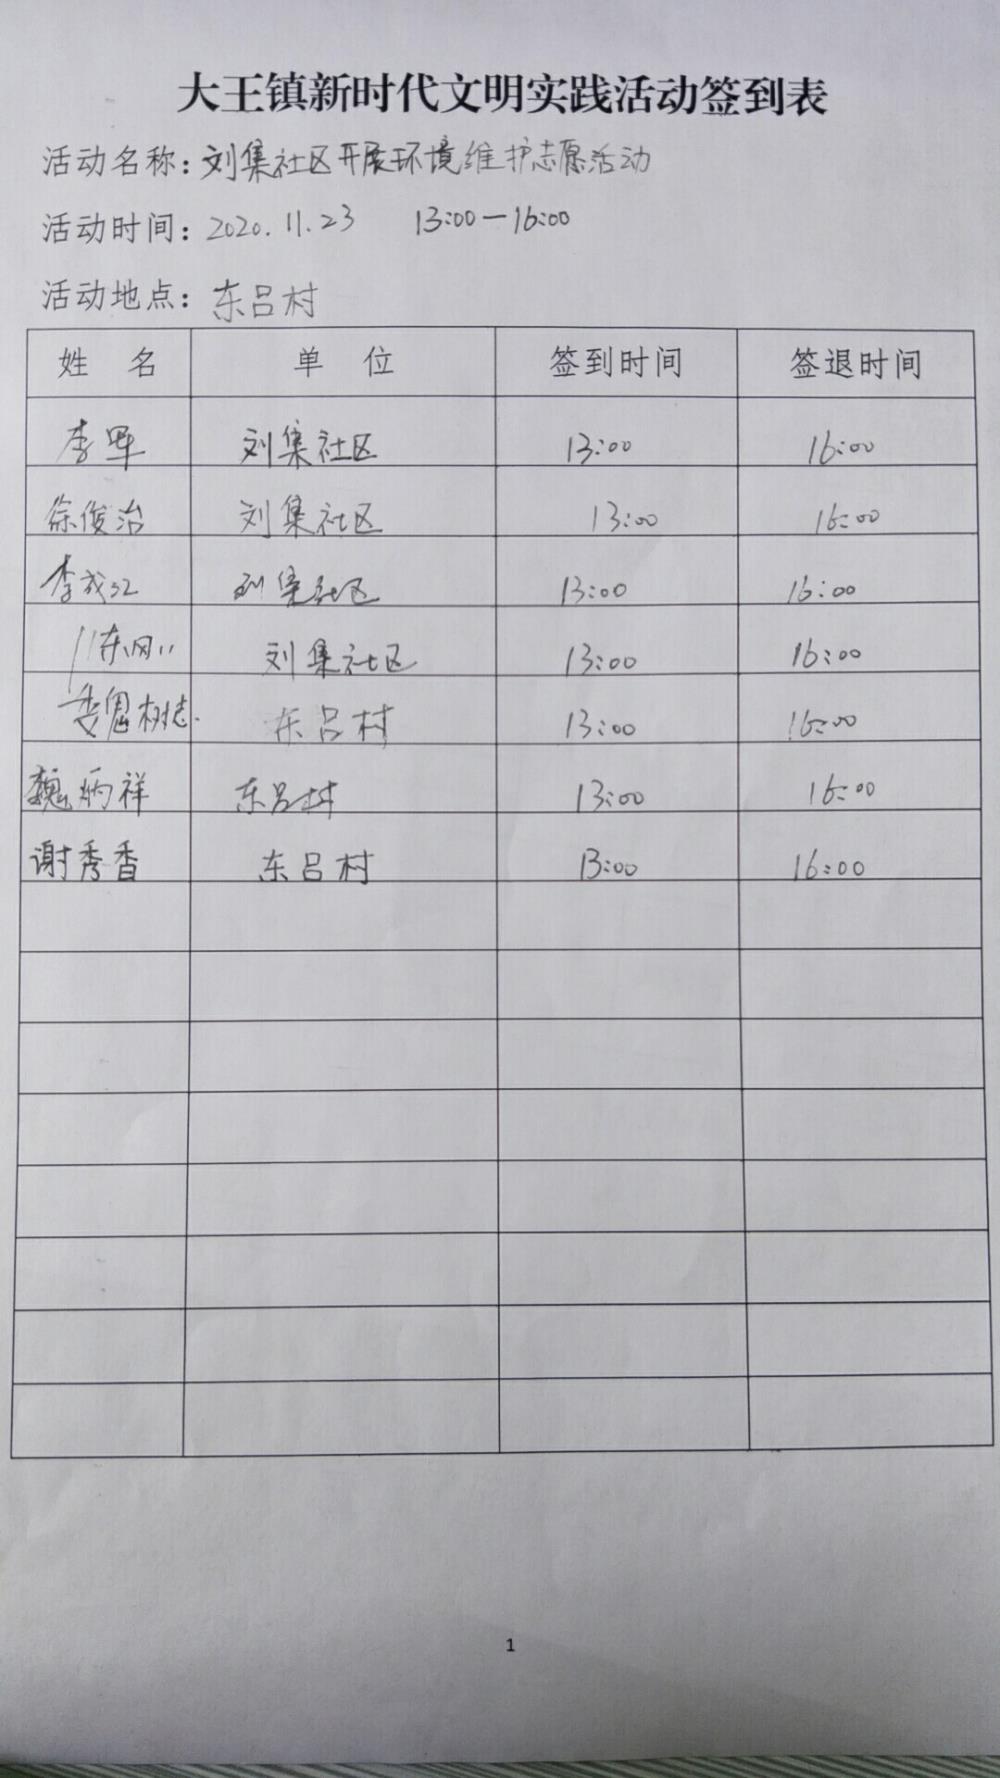 大王镇新时代文明实践活动签到表
活动名称：刘集社区开展环境维护志愿活动
活动时间：2020.11.23 13:00—16:00
活动地点：东吕村
姓 名 单 位 签到时间 签退时间
李军 刘集社区 13:00 16:00
徐俊治 刘集社区 13:00 16:00
李成江 刘集社区 13:00 16:00
刘集社区 13:00 16:00
魏树志 东吕村 13:00 16:00
魏炳祥 东吕村 13:00 16:00
谢秀香 东吕村 13:00 16:00
1